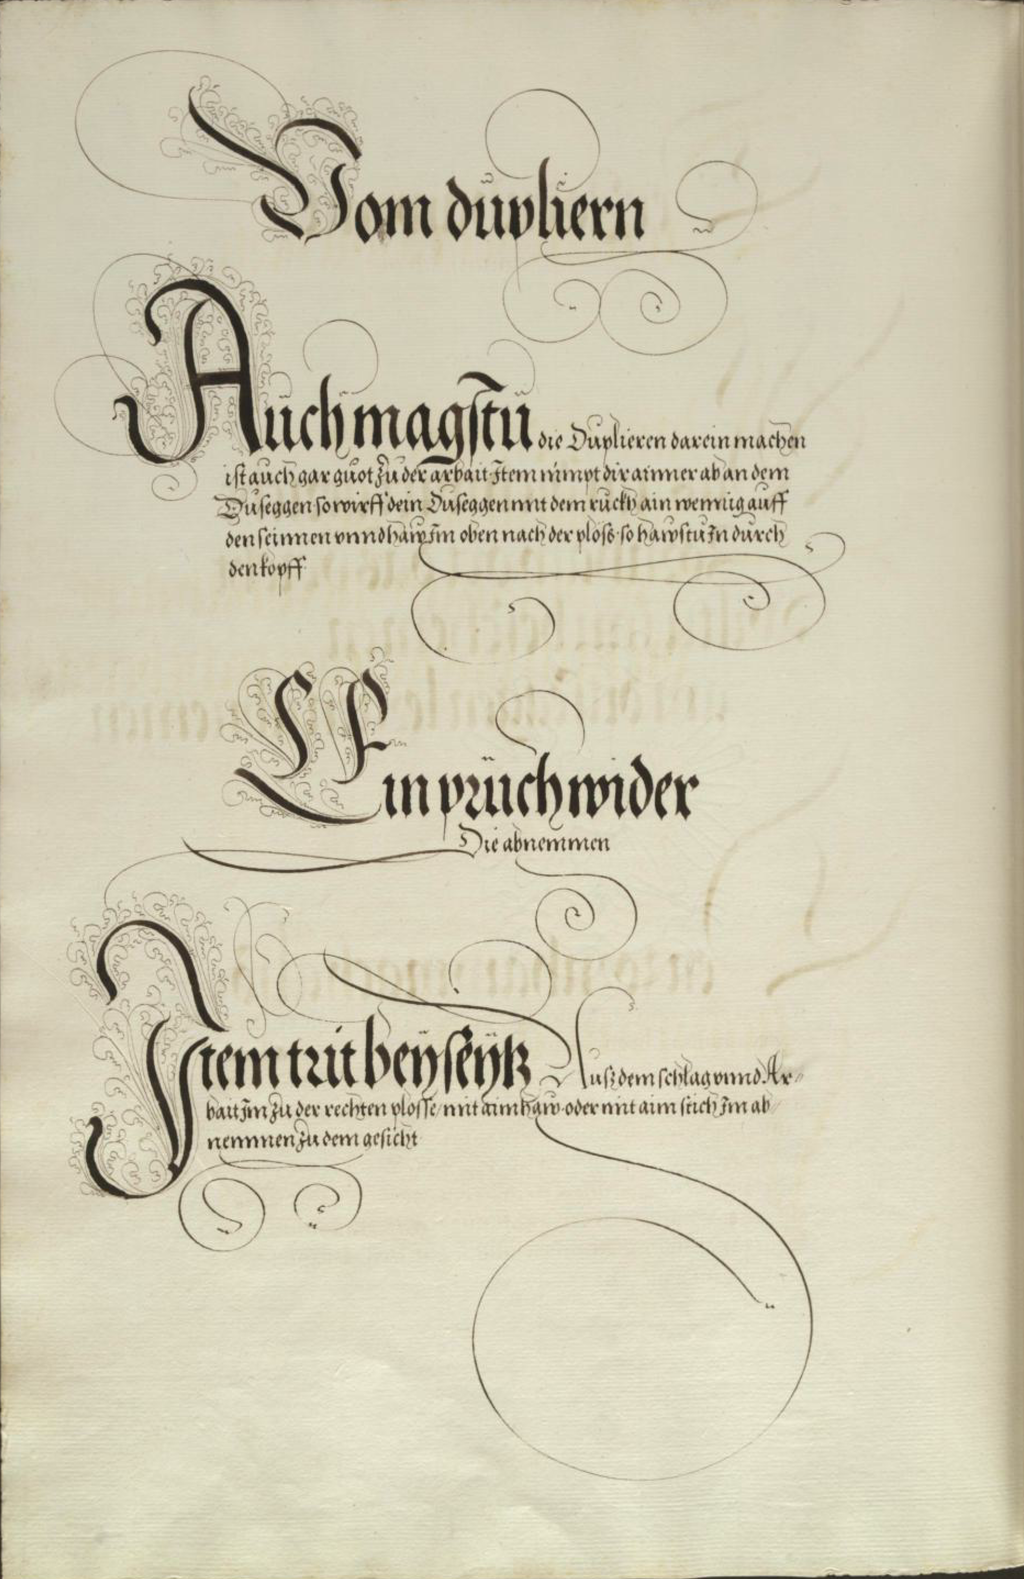 Vom dupliern
Auch magstu die Duplieren darein machen
ist auch gar guot zu der arbait Item nimpt dir ainner ab an dem
Duseggen so wirff dein Duseggen mit dem ruckh ain wennig auff
den seinnen vnnd haw Im oben nach der plöss so hawstu In durch
den kopff
Ein pruch wider
Die abnemmen
Item trit beyseytz Ausz dem schlag vnnd Ar=
bait Im zu der rechten plosse mit aim haw oder mit aim stich Im ab
nemmen zu dem gesicht